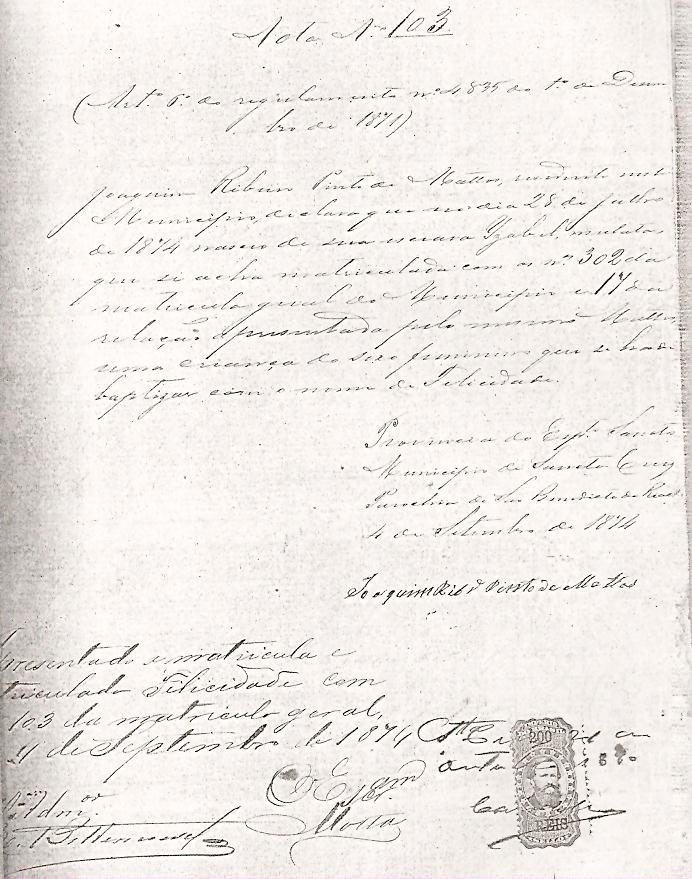 Nota N. 103.
(Art.º 6º do regulamento nº 4835 do 1º de Dezem
bro de 1871)
Joaquim Ribeiro Pinto de Mattos, residente neste
Municipio, declara que no dia 28 de Julho
de 1874 nasceu de sua escrava Izabel, mulata
que se acha matriculada com os nº 302 da
matricula geral do Municipio e 17 da
relação apresentada pelo mesmo Mattos
uma criança do sexo feminino que se ha de
baptizar com o nome de Felicidade.
Provincia do Esp.to Santo
Municipio de Sancta Cruz
Parochia de São Benedicto do
4 de Setembro de 1874
Joaquim Rib.ro Pinto de Mattos
presentado a matricula e
triculada Felicidade com
103 da matricula geral,
4 de Septembro de 1874
O Escr.am
Motta
200
REIS